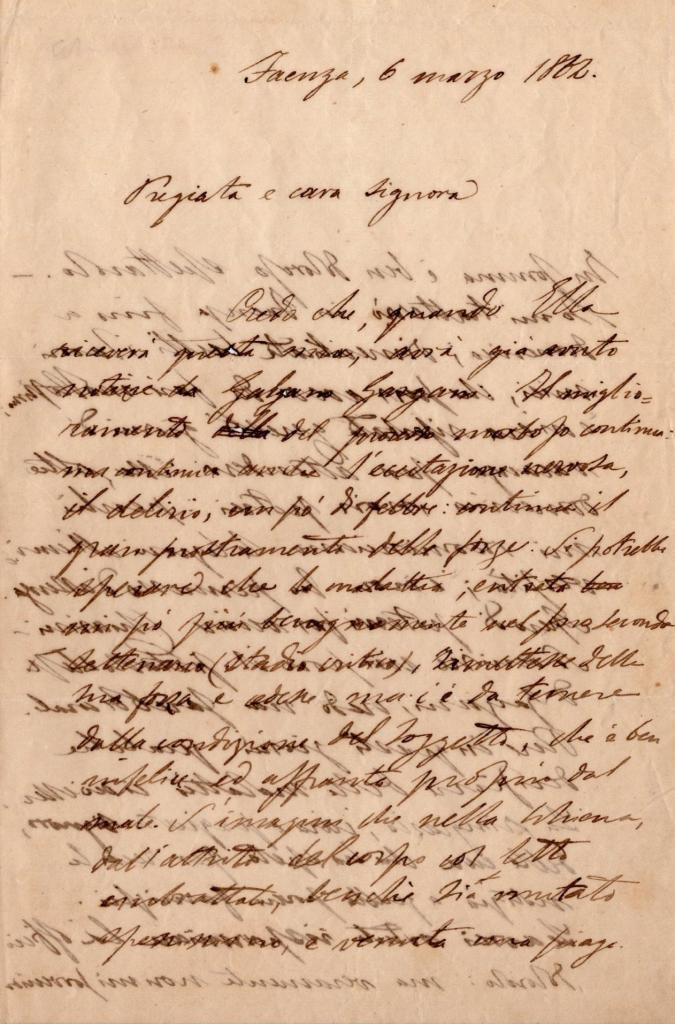 Faenza, 6 marzo 1882.
Pregiata e cara Signora
Credo che, quando Ella
riceverà questa mia, avrà già avuto
notizie da Galgano Gargani; Il miglio=
ramento del processo morboso continua:
ma continua anche l'eccitazione nervosa,
il delirio, un pó di febbre: continua il
gran prostramento delle forze. Si potrebbe
sperare che la malattia, entrata
un pó più benignamente nel suo secondo
settenario (stadio critico), rimettesse della
sua forza e cedesse ma c'è da temere
dalla condizione del soggetto, che è ben
infelice ed affranto proprio dal
male. S'imagini che nella schiena,
dall'attrito del corpo col letto
imbrattato, benchè sia mutato
spessissimo, è venuta una piaga.